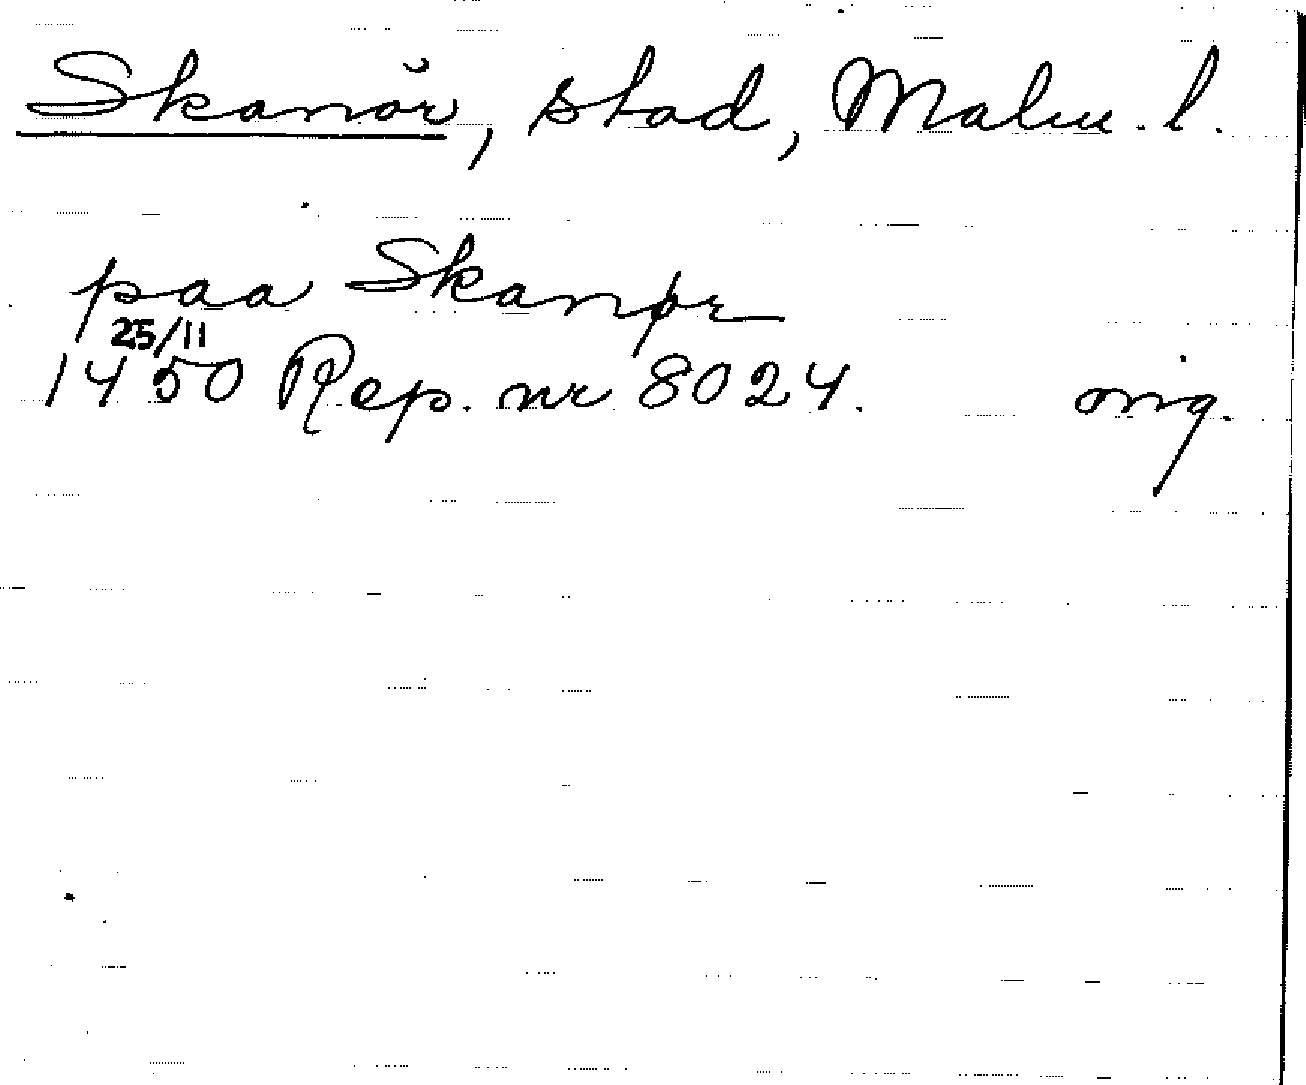 Skanör, stad, Malm. l.
paa Skanør
25/11
1450 Rep. nr 8024. orig.